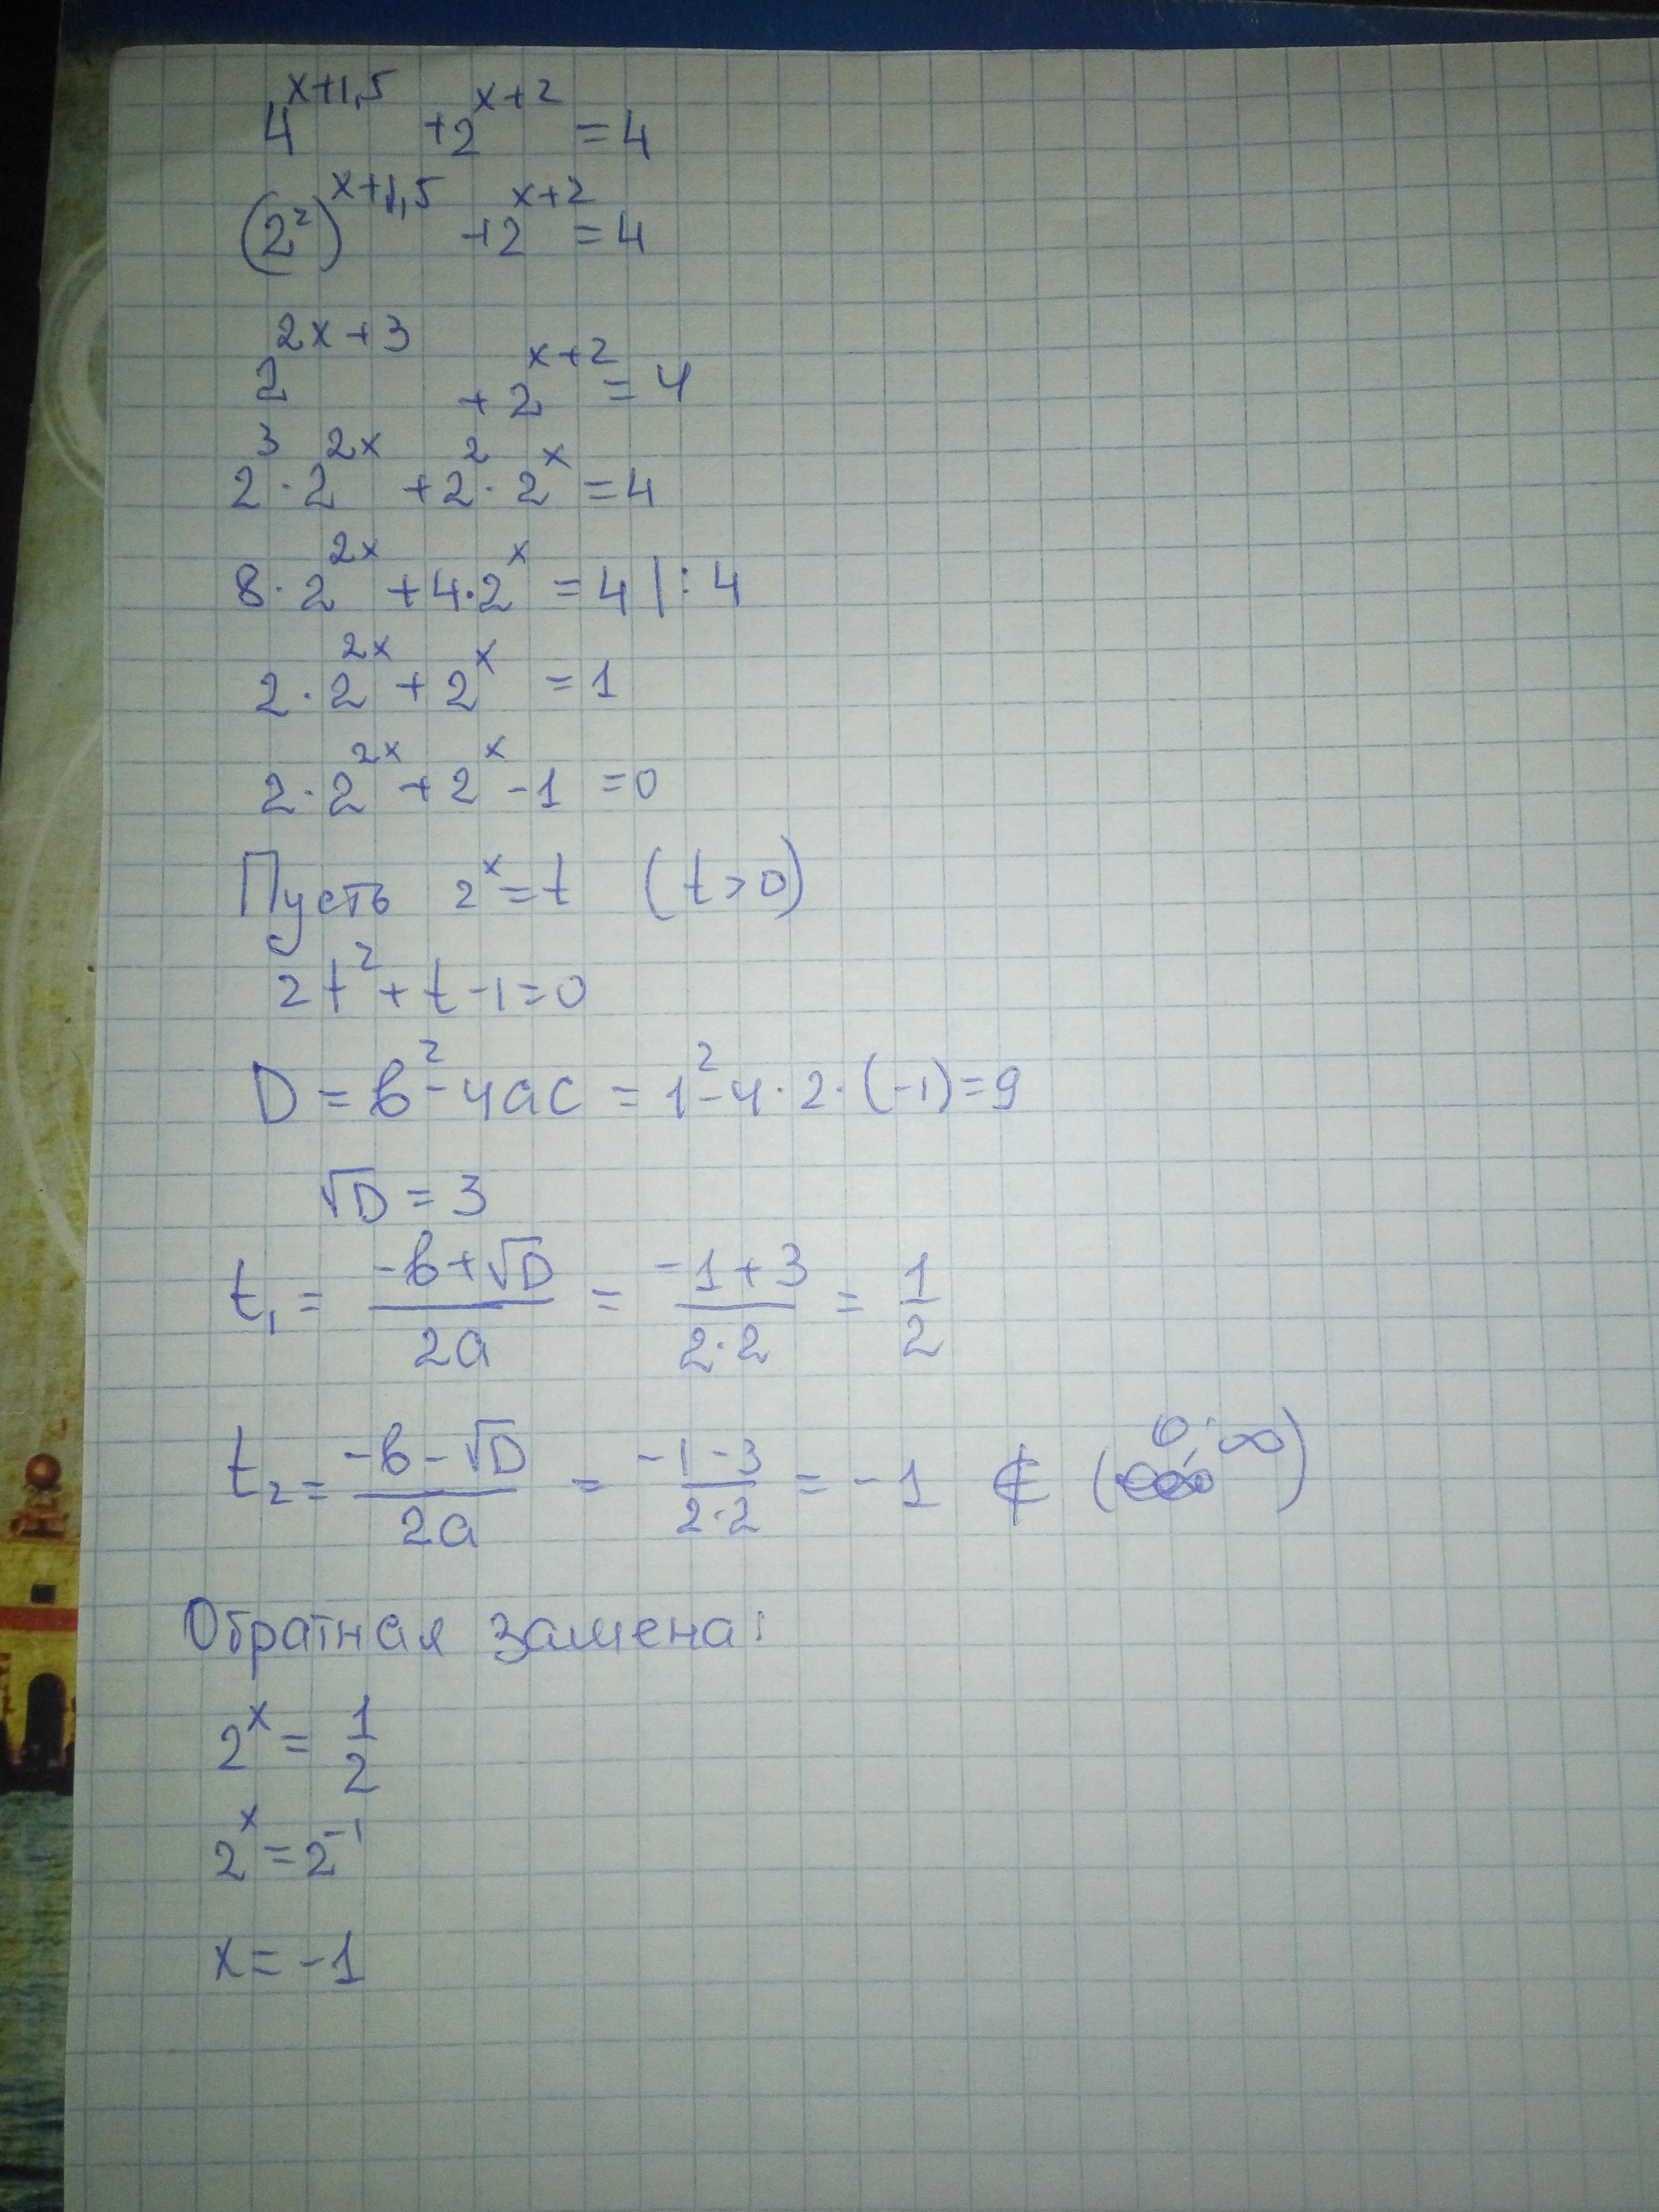 4^{x+1,5} + 2^{x+2} = 4
(2^2)^{x+1,5} + 2^{x+2} = 4
2^{2x+3} + 2^{x+2} = 4
2^3 · 2^{2x} + 2^2 · 2^x = 4
8 · 2^{2x} + 4 · 2^x = 4 | : 4
2 · 2^{2x} + 2^x = 1
2 · 2^{2x} + 2^x - 1 = 0
Пусть 2^x = t (t > 0)
2t^2 + t - 1 = 0
D = b^2 - 4ac = 1^2 - 4 · 2 · (-1) = 9
√D = 3
t_1 = \frac{-b+√D}{2a} = \frac{-1+3}{2·2} = \frac{1}{2}
t_2 = \frac{-b-√D}{2a} = \frac{-1-3}{2·2} = -1 ∉ (0; ∞)
Обратная замена:
2^x = \frac{1}{2}
2^x = 2^{-1}
x = -1